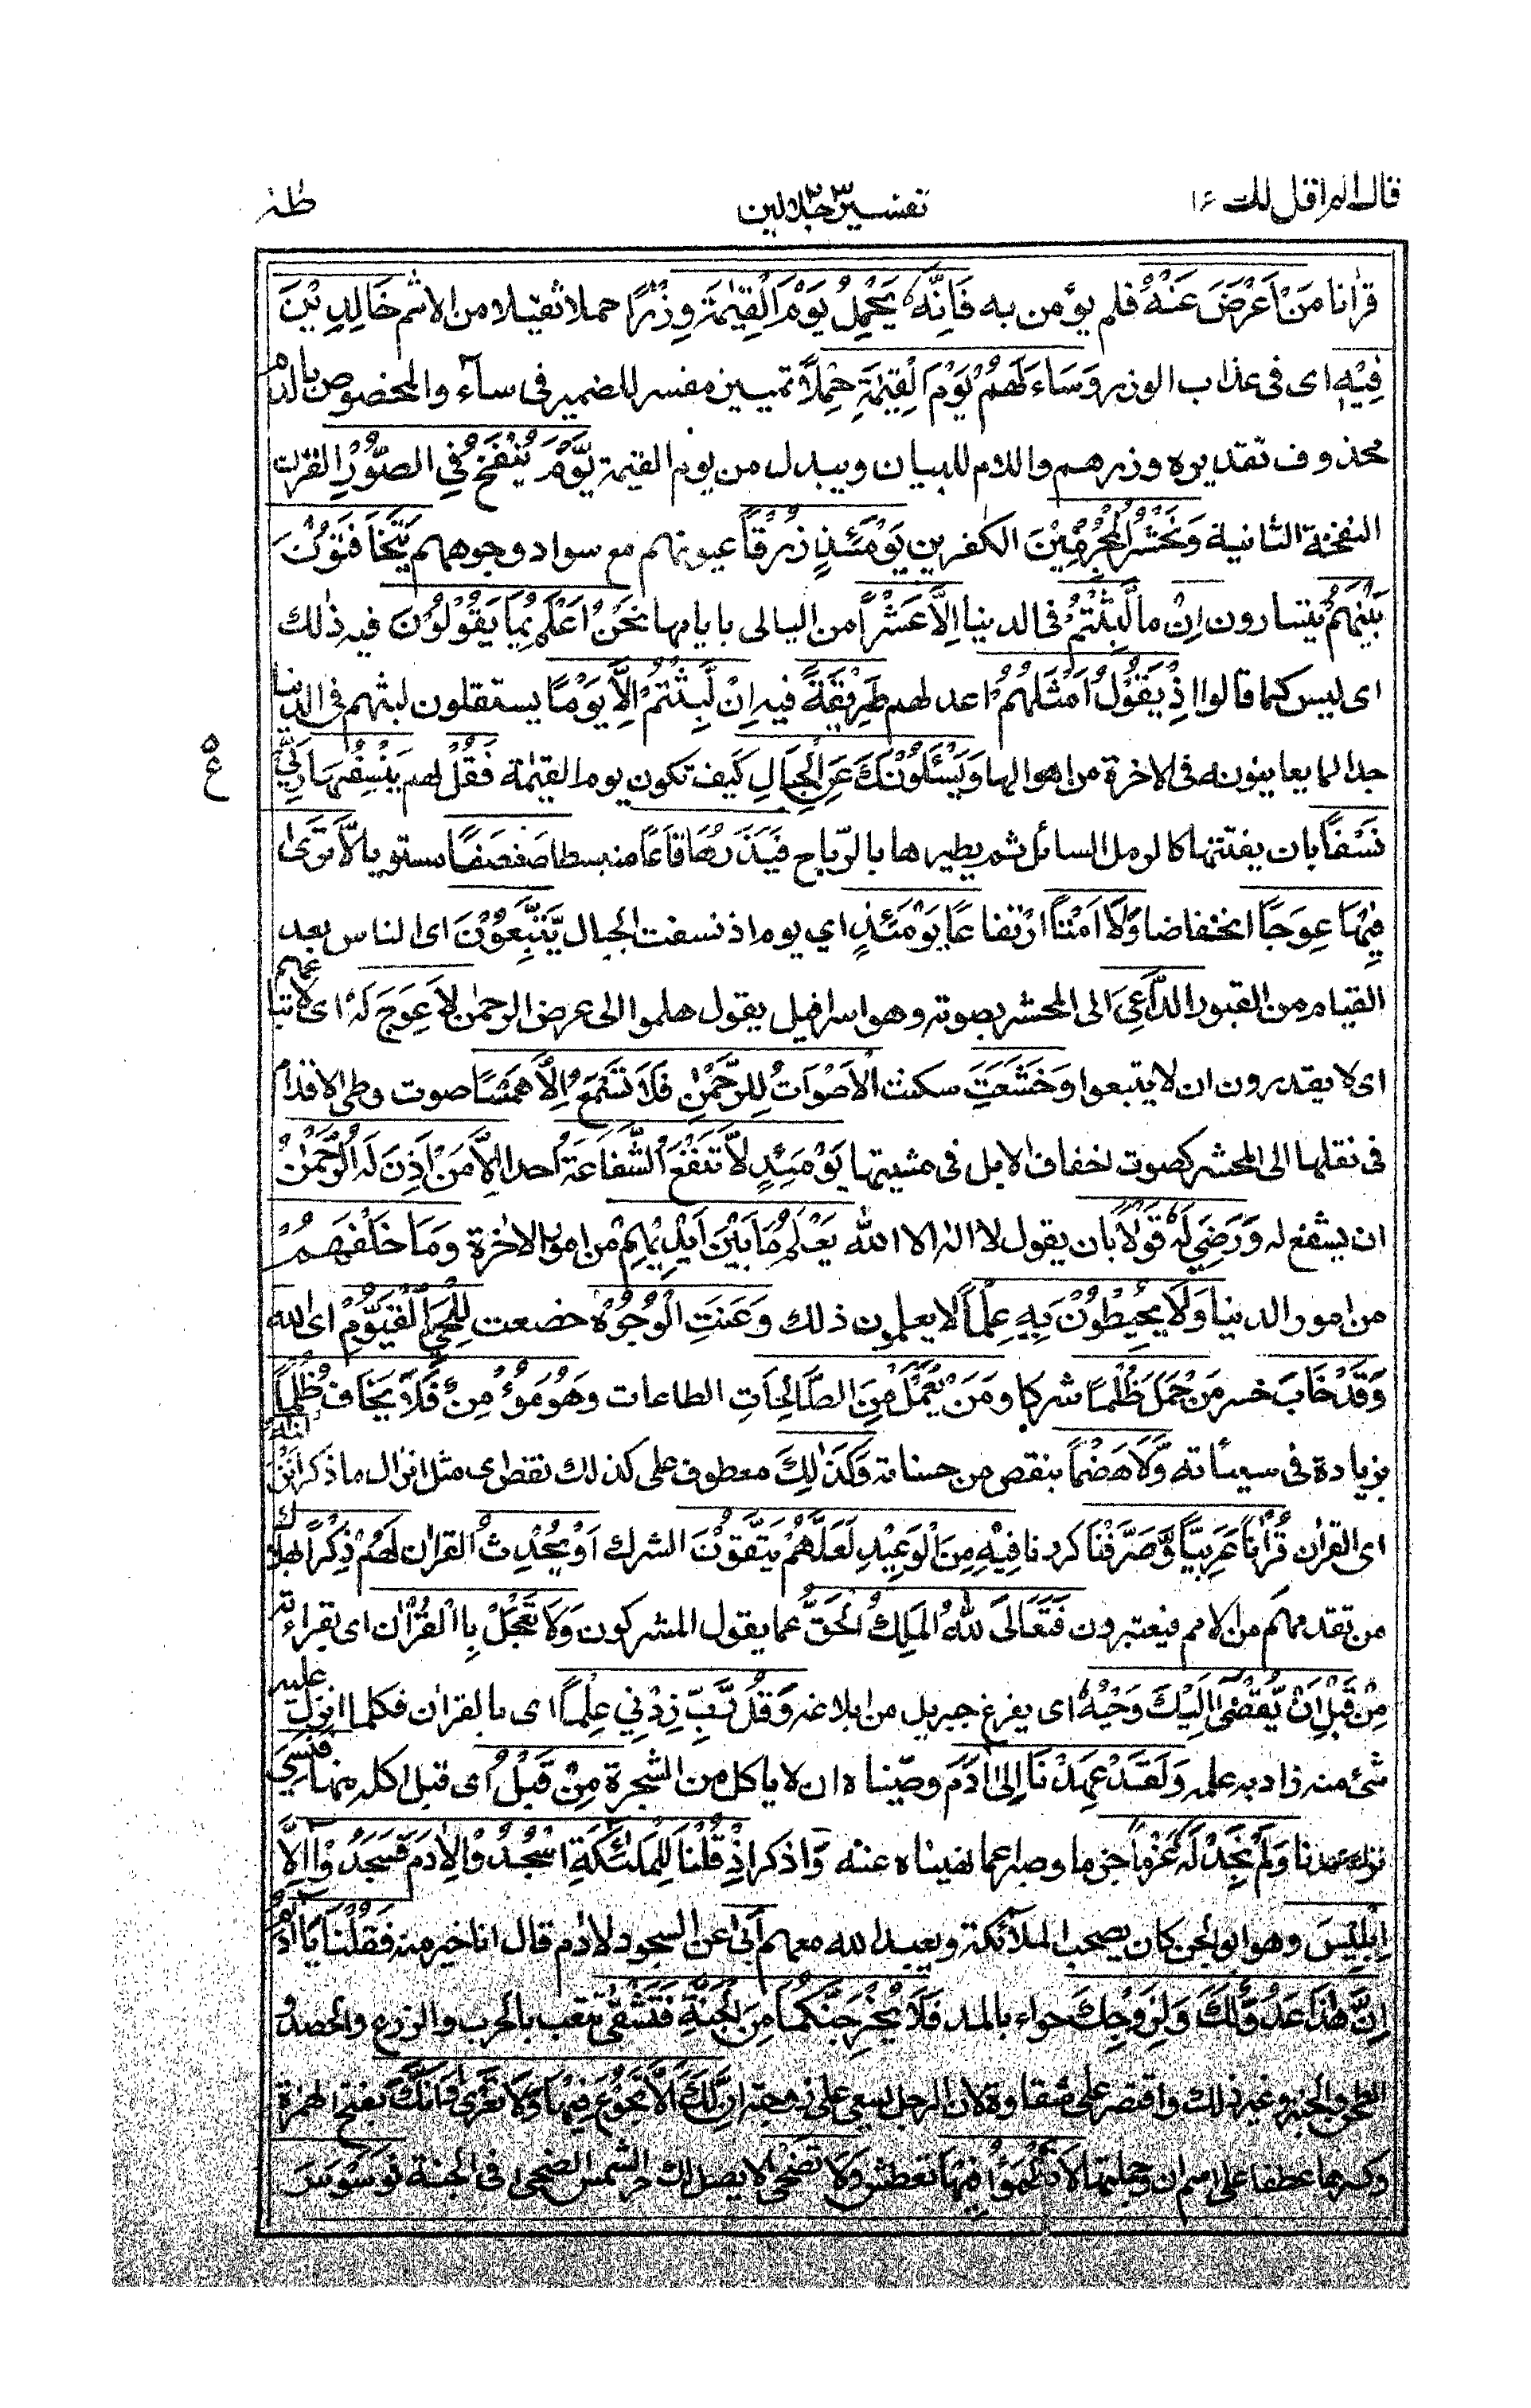 قال الم اقل لك ۱۶
تفسیر جلالین
طٰهٰ
قرانا مَنْ اَعْرَضَ عَنْهُ فلم يؤمن به فَاِنَّهٗ يَحْمِلُ يَوْمَ الْقِيٰمَةِ وِزْرًا حملا ثقيلا من الاثم خَالِدِيْنَ
فِيْهِ اى فى عذاب الوزر وَسَاءَ لَهُمْ يَوْمَ الْقِيٰمَةِ حِمْلًا تمييز مفسر للضمير فى ساء والمخصوص بالذم
محذوف تقديره وزرهم واللام للبيان ويبدل من يوم القيمة يَّوْمَ يُنْفَخُ فِي الصُّوْرِ القرن
النفخة الثانية وَنَحْشُرُ الْمُجْرِمِيْنَ الكفرين يَوْمَئِذٍ زُرْقًا عيونهم مع سواد وجوههم يَّتَخَافَتُوْنَ
بَيْنَهُمْ يتسارون اِنْ ما لَّبِثْتُمْ فى الدنيا اِلَّا عَشْرًا من اليالى بايامها نَحْنُ اَعْلَمُ بِمَا يَقُوْلُوْنَ فيه ذلك
اى ليس كما قالوا اِذْ يَقُوْلُ اَمْثَلُهُمْ اعدلهم طَرِيْقَةً فيه اِنْ لَّبِثْتُمْ اِلَّا يَوْمًا يستقلون لبثهم فى الدنيا
جدا لما يعاينونه فى الاخرة من اهوالها وَيَسْئَلُوْنَكَ عَنِ الْجِبَالِ كيف تكون يوم القيٰمة فَقُلْ لهم يَنْسِفُهَا رَبِّيْ
ع ۵
نَسْفًا بان يفتتها كالرمل السائل ثم يطيرها بالرّياح فَيَذَرُهَا قَاعًا منبسطا صَفْصَفًا مستويا لَّا تَرٰى
فِيْهَا عِوَجًا انخفاضا وَّلَا اَمْتًا ارتفاعا يَوْمَئِذٍ اي يوم اذ نسفت الجبال يَّتَّبِعُوْنَ اى الناس بعد
القيام من القبور الدَّاعِيَ الى المحشر بصوته وهو اسرافيل يقول هلموا الى عرض الرحمٰن لَا عِوَجَ لَهٗ اى لاتباعهم
اى لا يقدرون ان لا يتبعوا وَخَشَعَتِ سكنت الْاَصْوَاتُ لِلرَّحْمٰنِ فَلَا تَسْمَعُ اِلَّا هَمْسًا صوت وطى الاقدام
فى نقلها الى المحشر كصوت اخفاف الابل فى مشيتها يَوْمَئِذٍ لَّا تَنْفَعُ الشَّفَاعَةُ احدا اِلَّا مَنْ اَذِنَ لَهُ الرَّحْمٰنُ
ان يشفع له وَرَضِيَ لَهٗ قَوْلًا بان يقول لا اله الا الله يَعْلَمُ مَا بَيْنَ اَيْدِيْهِمْ من امور الاخرة وَمَا خَلْفَهُمْ
من امور الدنيا وَلَا يُحِيْطُوْنَ بِهٖ عِلْمًا لا يعلمون ذلك وَعَنَتِ الْوُجُوْهُ خضعت لِلْحَيِّ الْقَيُّوْمِ اى الله
وَقَدْ خَابَ خسر مَنْ حَمَلَ ظُلْمًا شركا وَمَنْ يَّعْمَلْ مِنَ الصّٰلِحَاتِ الطاعات وَهُوَ مُؤْمِنٌ فَلَا يَخَافُ ظُلْمًا
بزيادة فى سيئاته وَّلَا هَضْمًا بنقص من حسناته وَكَذٰلِكَ معطوف على كذلك نقص اى مثل انزال ما ذكر اَنْزَلْنٰهُ
اى القران قُرْاٰنًا عَرَبِيًّا وَّصَرَّفْنَا كررنا فِيْهِ مِنَ الْوَعِيْدِ لَعَلَّهُمْ يَتَّقُوْنَ الشرك اَوْ يُحْدِثُ القران لَهُمْ ذِكْرًا بهلاك
من تقدمهم من الامم فيعتبرون فَتَعَالَى اللّٰهُ الْمَلِكُ الْحَقُّ عما يقول المشركون وَلَا تَعْجَلْ بِالْقُرْاٰنِ اى بقراءته
مِنْ قَبْلِ اَنْ يُّقْضٰى اِلَيْكَ وَحْيُهٗ اى يفرغ جبريل من ابلاغه وَقُلْ رَّبِّ زِدْنِيْ عِلْمًا اى بالقران فكلما انزل عليه
شئ منه زاد به علمه وَلَقَدْ عَهِدْنَا اِلٰى اٰدَمَ وصّيناه ان لا ياكل من الشجرة مِنْ قَبْلُ اى قبل اكله منها فَنَسِيَ
ترك عهدنا وَلَمْ نَجِدْ لَهٗ عَزْمًا جزما وصبرا عما نهيناه عنه وَ اذكر اِذْ قُلْنَا لِلْمَلٰٓئِكَةِ اسْجُدُوْا لِاٰدَمَ فَسَجَدُوْا اِلَّا
اِبْلِيْسَ وهو ابو الجن كان يصحب الملائكة ويعبد الله معهم اَبٰى عن السجود لادم قال انا خير منه فَقُلْنَا يٰٓاٰدَمُ
اِنَّ هٰذَا عَدُوٌّ لَّكَ وَلِزَوْجِكَ حواء بالمد فَلَا يُخْرِجَنَّكُمَا مِنَ الْجَنَّةِ فَتَشْقٰى تتعب بالحرث والزرع والحصد و
الطحن والخبز وغير ذلك واقتصر على شقاوة لان الرجل يسعى على زوجته اِنَّ لَكَ اَلَّا تَجُوْعَ فِيْهَا وَلَا تَعْرٰى وَاَنَّكَ بفتح الهمزة
وكسرها عطفا على اسم ان وجملتها لَا تَظْمَؤُا فِيْهَا تعطش وَلَا تَضْحٰى لا يصل لك حر الشمس الضحى فى الجنة فَوَسْوَسَ